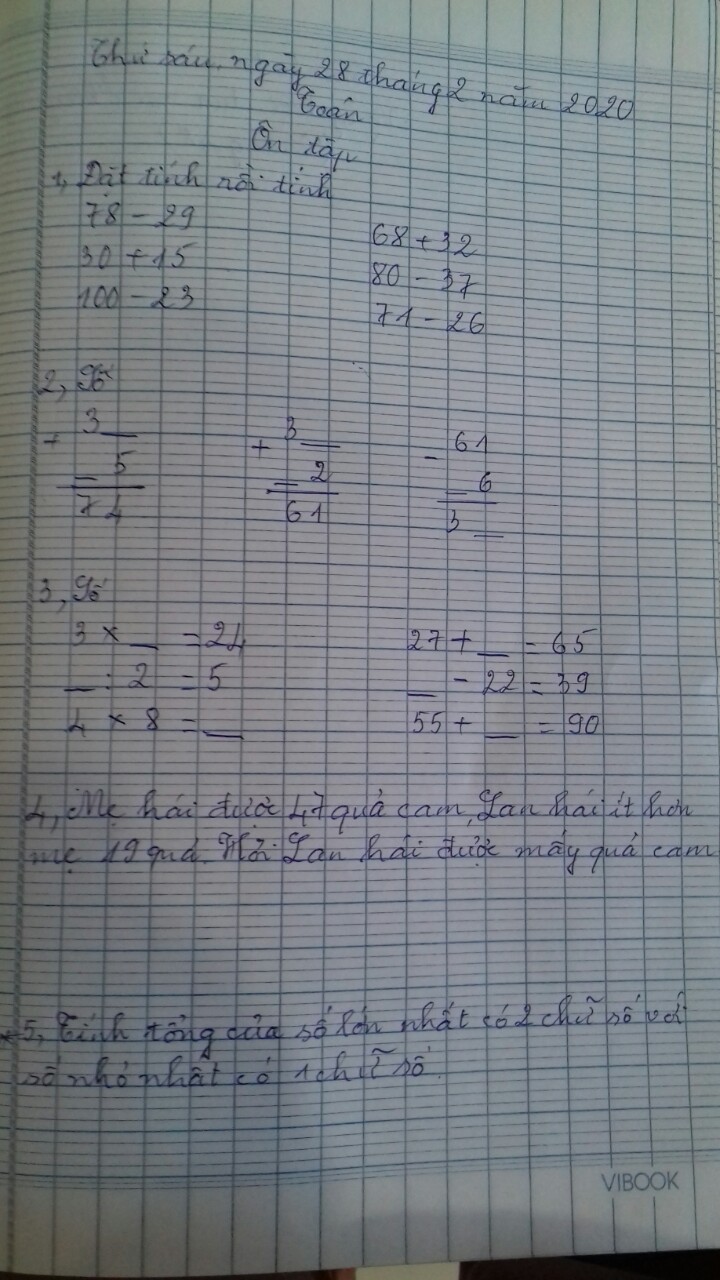 Thứ sáu, ngày 28 tháng 2 năm 2020
Toán
Ôn tập
1, Đặt tính rồi tính
78 - 29
68 + 32
30 + 15
80 - 37
100 - 23
71 - 26
2, Số
+ 3 _ + 3 _ - 61
_ 5 _ 2 _ 6
74 61 3 _
3, Số
3 × _ = 24 27 + _ = 65
_ : 2 = 5 _ - 22 = 39
4 × 8 = _ 55 + _ = 90
4, Mẹ hái được 47 quả cam, Lan hái ít hơn
mẹ 19 quả. Hỏi Lan hái được mấy quả cam
5, Tính tổng của số lớn nhất có 2 chữ số với
số nhỏ nhất có 1 chữ số.
VIBOOK